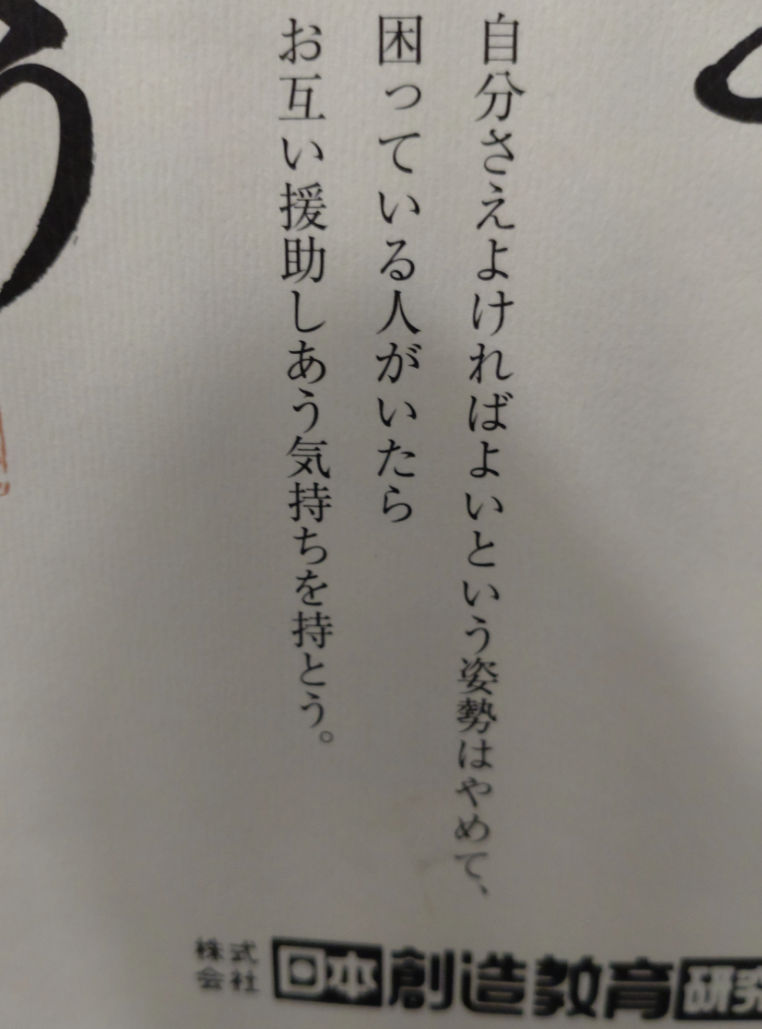 自分さえよければよいという姿勢はやめて、
困っている人がいたら
お互い援助しあう気持ちを持とう。
株式会社 日本創造教育研究